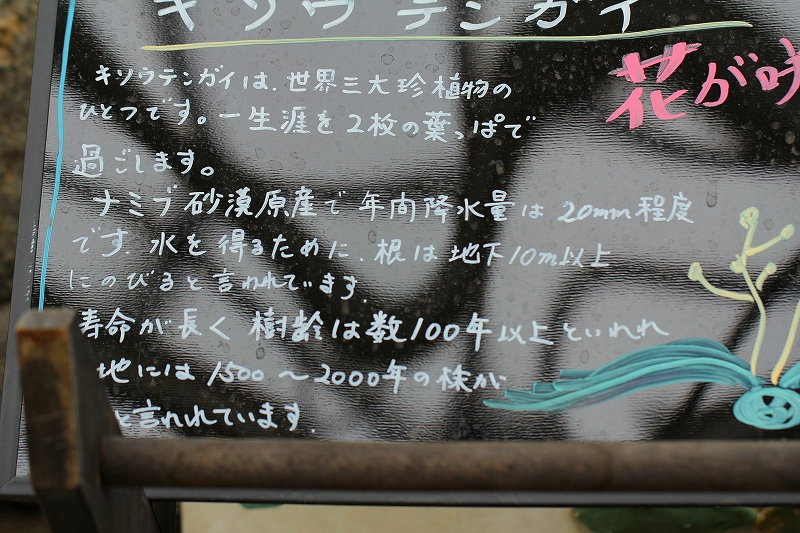 キソウテンガイ
花が咲
キソウテンガイは、世界三大珍植物の
ひとつです。一生涯を2枚の葉っぱで
過ごします。
ナミブ砂漠原産で年間降水量は20mm程度
です。水を得るために、根は地下10m以上
にのびると言われています。
寿命が長く樹齢は数100年以上といわれ
地には1500〜2000年の株が
と言われています。